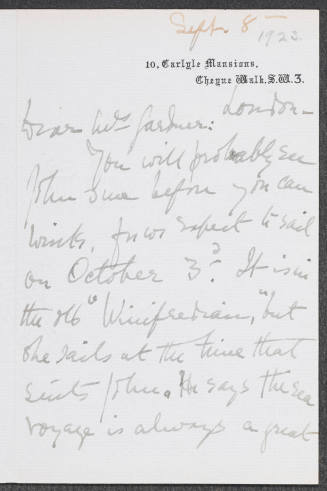 Sept. 8 1922.
10, Carlyle Mansions,
Cheyne Walk, S.W.3.
London—
Dear Mrs Gardner:
You will probably see
John & me before you can
wink, for we expect to sail
on October 3d. It is in
the old "Winifredian", but
she sails at the time that
suits John. He says the sea
voyage is always a great